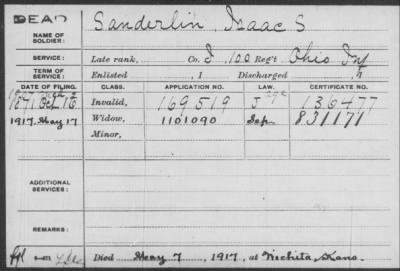 DEAD
NAME OF SOLDIER: Sanderlin, Isaac S
SERVICE: Late rank, Co. I, 100 Reg't Ohio Inf
TERM OF SERVICE: Enlisted , 1 Discharged , 1
DATE OF FILING. CLASS. APPLICATION NO. LAW. CERTIFICATE NO.
1871 Oct 16 Invalid, 169519 J 136477
1917. May 17 Widow, 1101090 Sep. 831171
Minor,
ADDITIONAL SERVICES:
REMARKS:
Died May 7, 1917, at Wichita Kans.